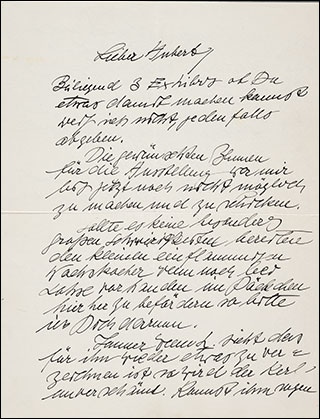 Lieber Hubert,
Beiliegend 3 Exlibris ob Du
etwas damit machen kannst
weiß ich nicht, jedenfalls
abgeben.
Die gewünschten Blumen
für die Ausstellung war mir
bis jetzt noch nicht möglich
zu machen und zu schicken.
Sollte es keine besonders
großen Schwierigkeiten bereiten
den kleinen einflammigen
Wachskocher wenn noch bei
vorhanden im Päckchen
hierher zu befördern so bitte
ich Dich darum.
Immer nicht das
für ihn wieder etwas zu ver=
zeichnen ist so wird der Kerl
unverschämt. Kannst ihm sagen